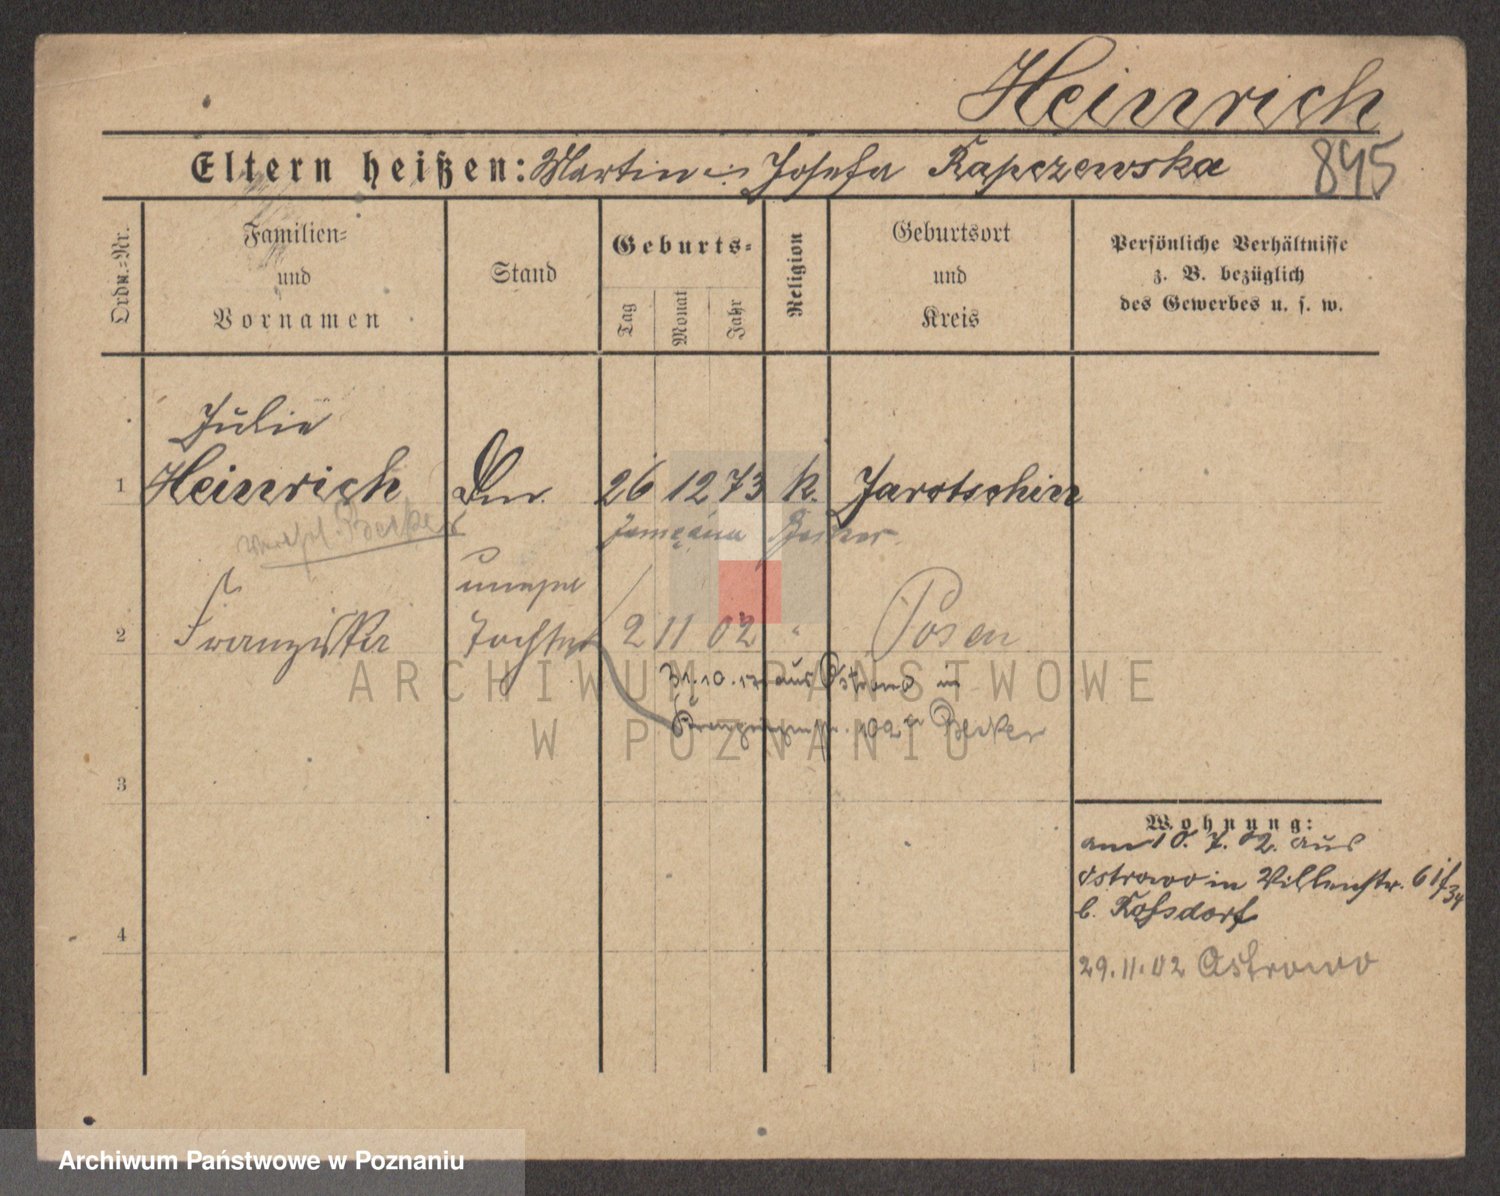 Heinrich
Eltern heißen: Martin u. Josefa Kapczewska
845
Ordn.-Nr.
Familien-
und
Vornamen
Stand
Geburts-
Tag
Monat
Jahr
Religion
Geburtsort
und
Kreis
Persönliche Verhältnisse
z. B. bezüglich
des Gewerbes u. s. w.
Julie
1 Heinrich 26 12 73 k. Jarotschin
Becker
unehel
2 Franziska Tochter 2 11 02 " Posen
31.10. aus Ostrowo in
102 Becker
3
4
Wohnung:
am 10. 7. 02. aus
Ostrowo in Villenstr. 6
b. Roßdorf
29.11.02 Ostrowo
ARCHIWUM PAŃSTWOWE
W POZNANIU
Archiwum Państwowe w Poznaniu